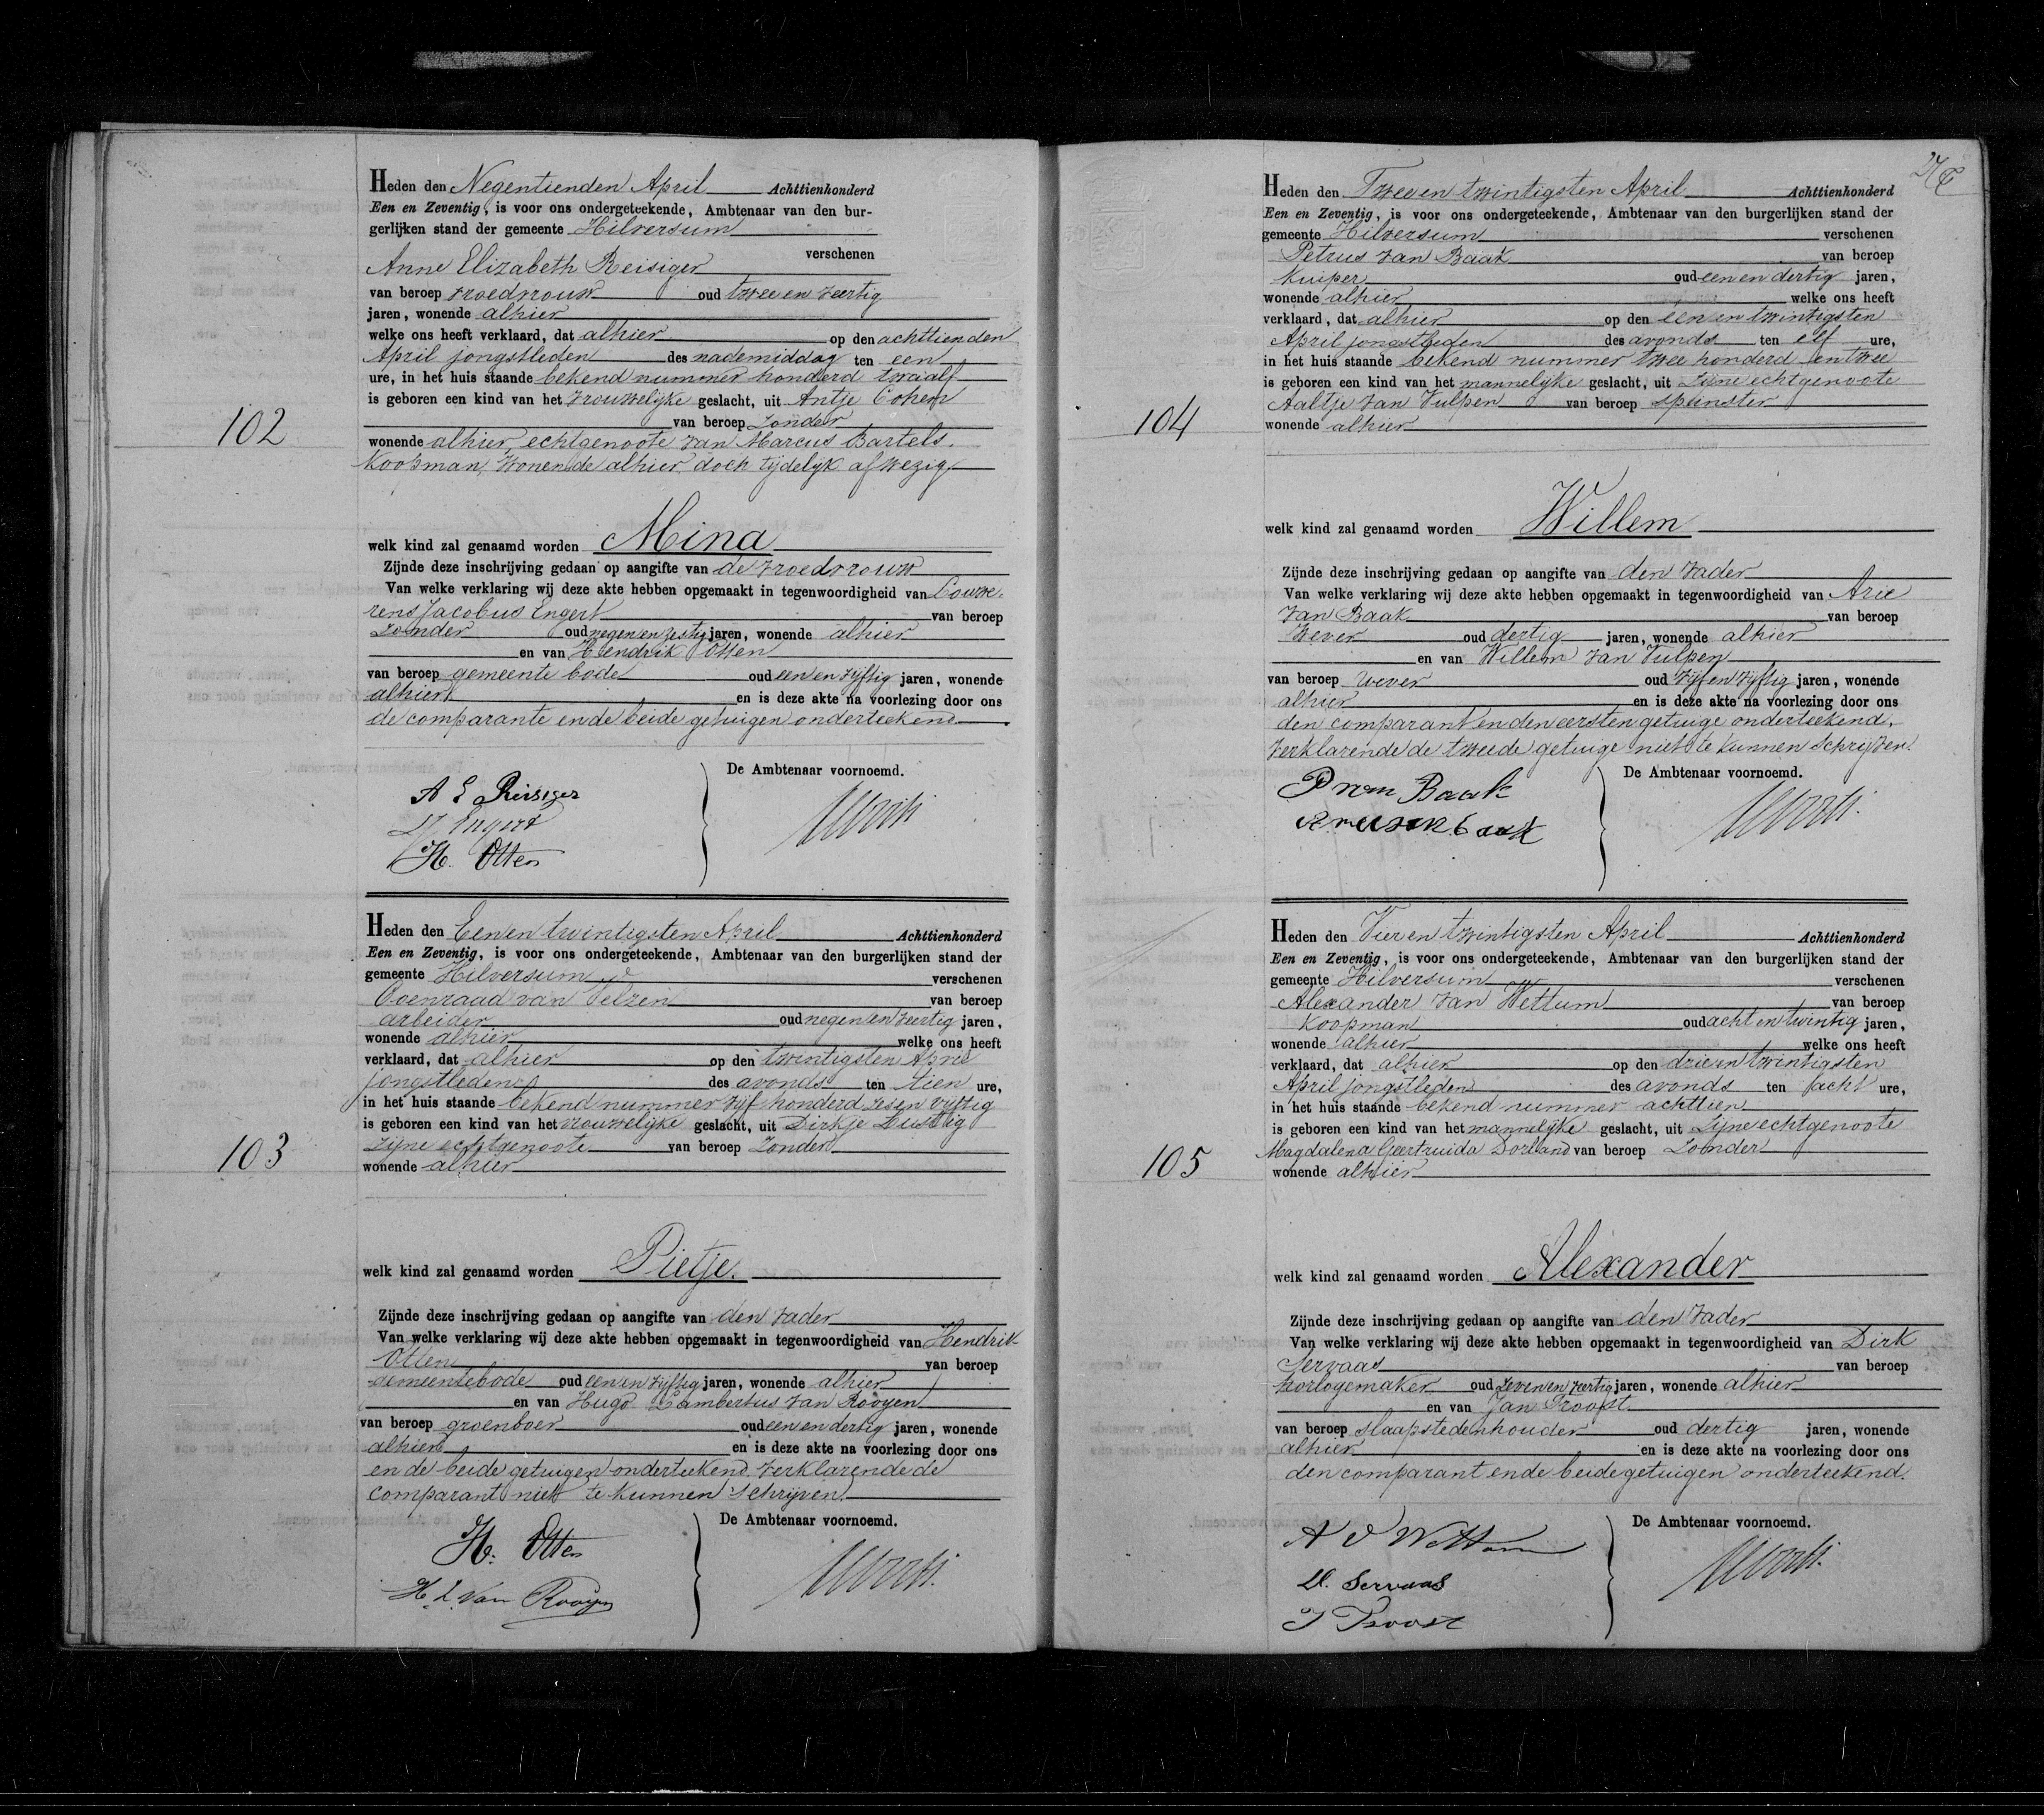 Heden den Negentienden April Achttienhonderd
Een en Zeventig, is voor ons ondergeteekende, Ambtenaar van den bur-
gerlijken stand der gemeente Hilversum
verschenen
Anne Elizabeth Reisiger
van beroep vroedvrouw oud twee en veertig
jaren, wonende alhier
welke ons heeft verklaard, dat alhier op den achttienden
April jongstleden des nademiddag ten een
ure, in het huis staande bekend nummer honderd twaalf
is geboren een kind van het vrouwelijke geslacht, uit Antje Cohen
van beroep Zonder
102
wonende alhier, echtgenoote van Marcus Bartels,
Koopman, wonende alhier, doch tijdelijk afwezig
welk kind zal genaamd worden Mina
Zijnde deze inschrijving gedaan op aangifte van de vroedvrouw
Van welke verklaring wij deze akte hebben opgemaakt in tegenwoordigheid van Louwe-
rens Jacobus Engert van beroep
Zonder oud negen en zestig jaren, wonende alhier
en van Hendrik Otten
van beroep gemeente bode oud een en vijftig jaren, wonende
alhier en is deze akte na voorlezing door ons
de comparante en de beide getuigen onderteekend
De Ambtenaar voornoemd.
A E Reisiger
LJ Engert
H. Otten
Heden den Een en twintigsten April Achttienhonderd
Een en Zeventig, is voor ons ondergeteekende, Ambtenaar van den burgerlijken stand der
gemeente Hilversum verschenen
Coenraad van Velzen van beroep
arbeider oud negen en veertig jaren,
wonende alhier welke ons heeft
verklaard, dat alhier op den twintigsten April
jongstleden des avonds ten tien ure,
in het huis staande bekend nummer vijf honderd zes en vijftig
is geboren een kind van het vrouwelijke geslacht, uit Dirkje Lustig
zijne echtgenoote van beroep Zonder
103
wonende alhier
welk kind zal genaamd worden Pietje.
Zijnde deze inschrijving gedaan op aangifte van den vader
Van welke verklaring wij deze akte hebben opgemaakt in tegenwoordigheid van Hendrik
Otten van beroep
gemeentebode oud een en vijftig jaren, wonende alhier
en van Hugo Lambertus van Rooyen
van beroep groenboer oud een en dertig jaren, wonende
alhier en is deze akte na voorlezing door ons
en de beide getuigen onderteekend verklarende de
comparant niet te kunnen schrijven.
De Ambtenaar voornoemd.
H. Otten
H. L. van Rooyen
Heden den Twee en twintigsten April Achttienhonderd
Een en Zeventig, is voor ons ondergeteekende, Ambtenaar van den burgerlijken stand der
gemeente Hilversum verschenen
Petrus van Baak van beroep
Kuiper oud een en dertig jaren,
wonende alhier welke ons heeft
verklaard, dat alhier op den één en twintigsten
April jongstleden des avonds ten elf ure,
in het huis staande bekend nummer twee honderd en twee
is geboren een kind van het mannelijke geslacht, uit Zijne echtgenoote
Aaltje van Vulpen van beroep spinster
104
wonende alhier
welk kind zal genaamd worden Willem
Zijnde deze inschrijving gedaan op aangifte van den vader
Van welke verklaring wij deze akte hebben opgemaakt in tegenwoordigheid van Arie
van Baak van beroep
Wever oud dertig jaren, wonende alhier
en van Willem van Vulpen
van beroep wever oud vijf en vijftig jaren, wonende
alhier en is deze akte na voorlezing door ons
den comparant en den eersten getuige onderteekend,
verklarende de tweede getuige niet te kunnen schrijven.
De Ambtenaar voornoemd.
P van Baak
Heden den Vier en twintigsten April Achttienhonderd
Een en Zeventig, is voor ons ondergeteekende, Ambtenaar van den burgerlijken stand der
gemeente Hilversum verschenen
Alexander van Wettum van beroep
Koopman oud acht en twintig jaren,
wonende alhier welke ons heeft
verklaard, dat alhier op den drie en twintigsten
April jongstleden des avonds ten acht ure,
in het huis staande bekend nummer achttien
is geboren een kind van het mannelijke geslacht, uit Zijne echtgenoote
Magdalena Geertruida Dorland van beroep Zonder
105
wonende alhier
welk kind zal genaamd worden Alexander
Zijnde deze inschrijving gedaan op aangifte van den vader
Van welke verklaring wij deze akte hebben opgemaakt in tegenwoordigheid van Dirk
Servaas van beroep
horlogemaker oud zeven en veertig jaren, wonende alhier
en van Jan Proost
van beroep slaapstedenhouder oud dertig jaren, wonende
alhier en is deze akte na voorlezing door ons
den comparant en de beide getuigen onderteekend.
De Ambtenaar voornoemd.
A V Wettum
D. Servaas
J Proost